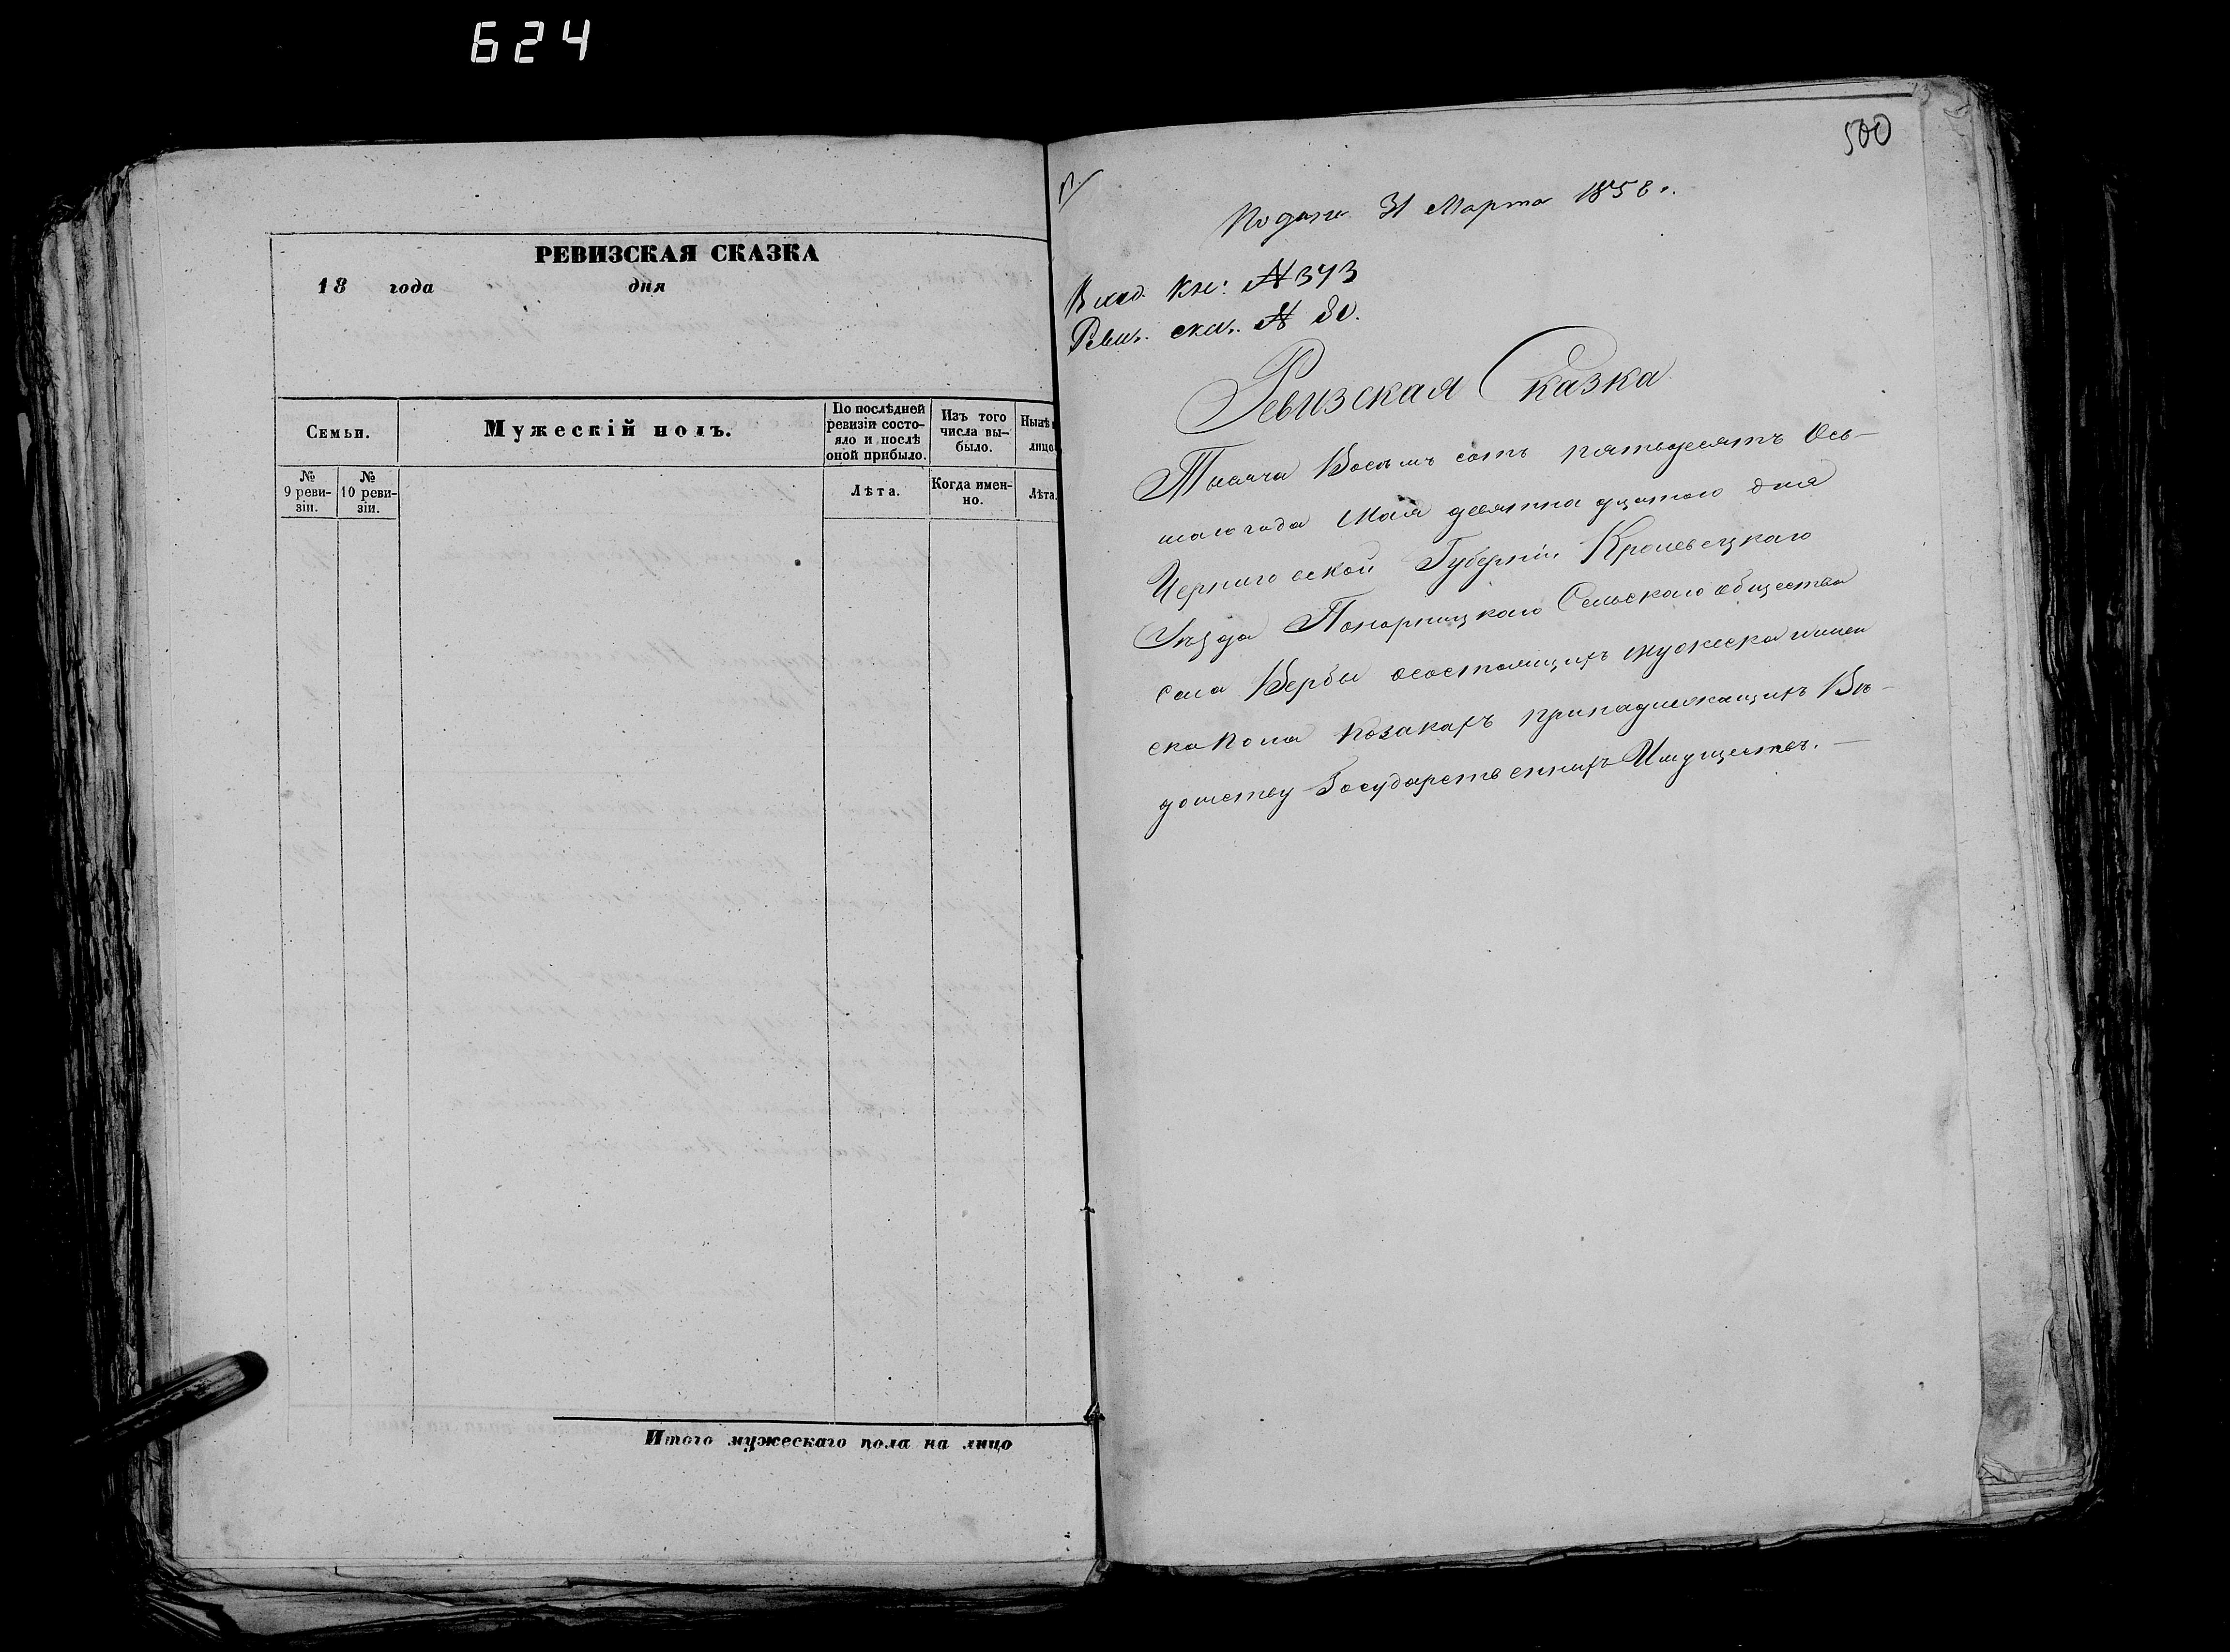 624
РЕВИЗСКАЯ СКАЗКА
18 года дня
Семьи.
Мужескій полъ.
По послѣдней ревизіи состояло и послѣ оной прибыло.
Изъ того числа выбыло.
Нынѣ
лицо
№ 9 ревизіи.
№ 10 ревизіи.
Лѣта.
Когда именно.
Лѣта.
Итого мужескаго пола на лицо
500
31 Марта 1858 г.
Вход. Кн: № 373
Ревиз. сказ. № 80.
Ревизская Сказка
Тысяча Восемъ сотъ пятьдесятъ Ось-
маго года Мая девятнадцатого дня
Черниговской Губерніи Кролевецкаго
Уѣзда Понорницкаго Сельскаго общества
села Вербы осостоящихъ мужеска и жен
ска пола козакахъ принадлежащихъ Вѣ-
домству Государственныхъ Имуществъ. —